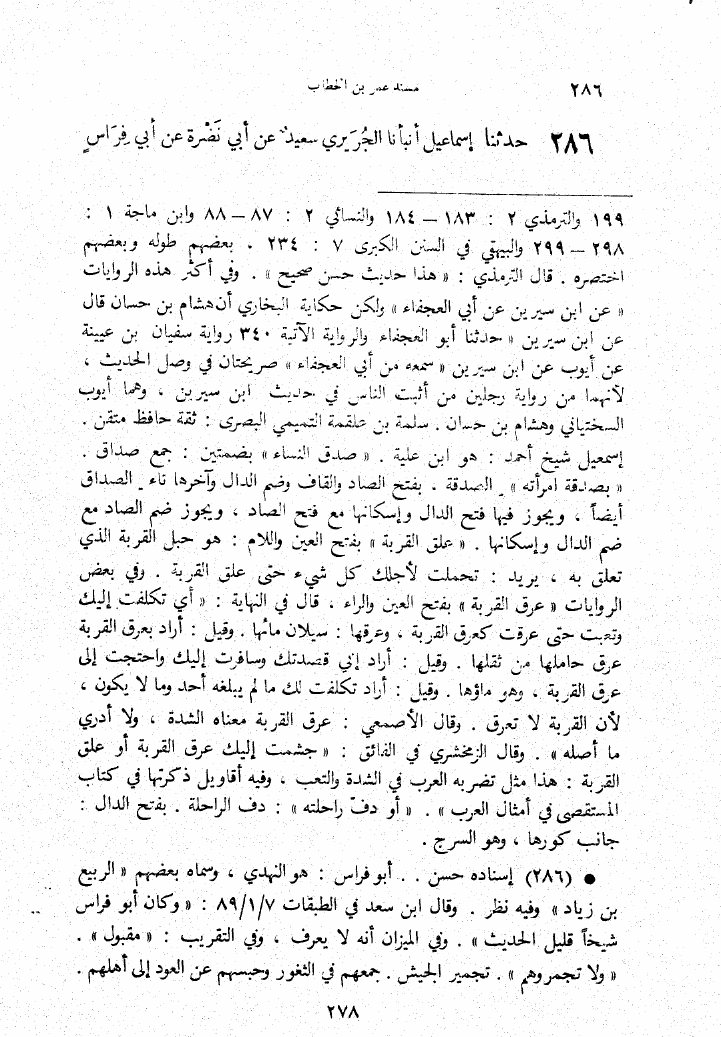 ٢٨٦ مسند عمر بن الخطاب
٢٨٦ حدثنا إسماعيل أنبأنا الجُرَيري سعيدٌ عن أبي نَضْرة عن أبي فِرَاسٍ
١٩٩ والترمذي ٢ : ١٨٣ – ١٨٤ والنسائي ٢ : ٨٧ – ٨٨ وابن ماجة ١ :
٢٩٨ – ٢٩٩ والبيهقي في السنن الكبرى ٧ : ٢٣٤ . بعضهم طوله وبعضهم
اختصره . قال الترمذي : « هذا حديث حسن صحيح » . وفي أكثر هذه الروايات
« عن ابن سيرين عن أبي العجفاء » ولكن حكاية البخاري أن هشام بن حسان قال
عن ابن سيرين « حدثنا أبو العجفاء والرواية الآتية ٣٤٠ رواية سفيان بن عيينة
عن أيوب عن ابن سيرين « سمعه من أبي العجفاء » صريحتان في وصل الحديث ،
لأنهما من رواية رجلين من أثبت الناس في حديث ابن سيرين ، وهما أيوب
السختياني وهشام بن حسان . سلمة بن علقمة التميمي البصرى : ثقة حافظ متقن .
إسمعيل شيخ أحمد : هو ابن علية . « صدق النساء » بضمتين : جمع صداق .
« بصدقة امرأته » . الصدقة . بفتح الصاد والقاف وضم الدال وآخرها تاء . الصداق
أيضاً ، ويجوز فيها فتح الدال وإسكانها مع فتح الصاد ، ويجوز ضم الصاد مع
ضم الدال وإسكانها . « علق القربة » بفتح العين واللام : هو حبل القربة الذي
تعلق به ، يريد : تحملت لأجلك كل شيء حتى علق القربة . وفي بعض
الروايات « عرق القربة » بفتح العين والراء ، قال في النهاية : « أي تكلفت إليك
وتعبت حتى عرقت كعرق القربة ، وعرقها : سيلان مائها . وقيل : أراد بعرق القربة
عرق حاملها من ثقلها . وقيل : أراد إني قصدتك وسافرت إليك واحتجت إلى
عرق القربة ، وهو ماؤها . وقيل : أراد تكلفت لك ما لم يبلغه أحد وما لا يكون ،
لأن القربة لا تعرق . وقال الأصمعي : عرق القربة معناه الشدة ، ولا أدري
ما أصله » . وقال الزمخشري في الفائق : « جشمت إليك عرق القربة أو علق
القربة : هذا مثل تضربه العرب في الشدة والتعب ، وفيه أقاويل ذكرتها في كتاب
المستقصى في أمثال العرب » . « أو دفّ راحلته » : دف الراحلة . بفتح الدال :
جانب كورها ، وهو السرج .
● (٢٨٦) إسناده حسن . . أبو فراس : هو النهدي ، وسماه بعضهم « الربيع
بن زياد » وفيه نظر . وقال ابن سعد في الطبقات ٨٩/١/٧ : « وكان أبو فراس
شيخاً قليل الحديث » . وفي الميزان أنه لا يعرف ، وفي التقريب : « مقبول » .
« ولا تجمروهم » . تجمير الجيش . جمعهم في الثغور وحبسهم عن العود إلى أهلهم .
٢٧٨